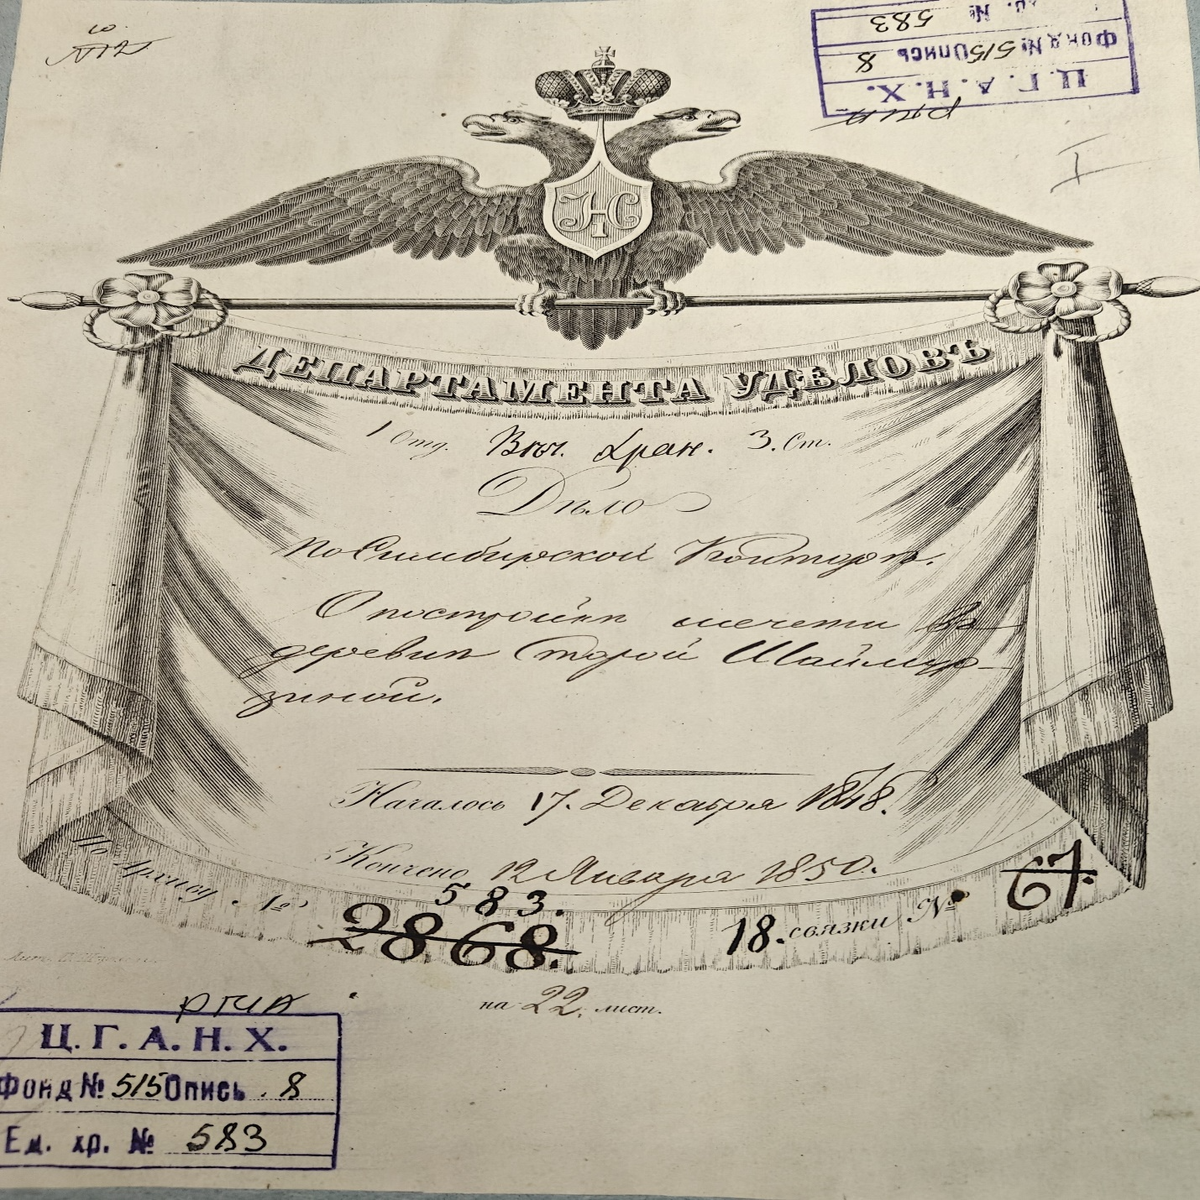 Ц. Г. А. Н. Х.
Фонд № 515 Опись 8
583
I
НС
ДЕПАРТАМЕНТА УДѢЛОВЪ
1 Отд. Хран. 3. Ст.
Дѣло
По Симбирской Конторѣ.
О постройкѣ мечети въ
деревнѣ Старой Шаймур-
зиной.
Началось 17. Декабря 1848.
Кончено 12 Января 1850.
По Архиву №
583.
2868.
18. связки № 67.
на 22. лист.
РГИА
Ц. Г. А. Н. Х.
Фонд № 515 Опись 8
Ед. хр. № 583